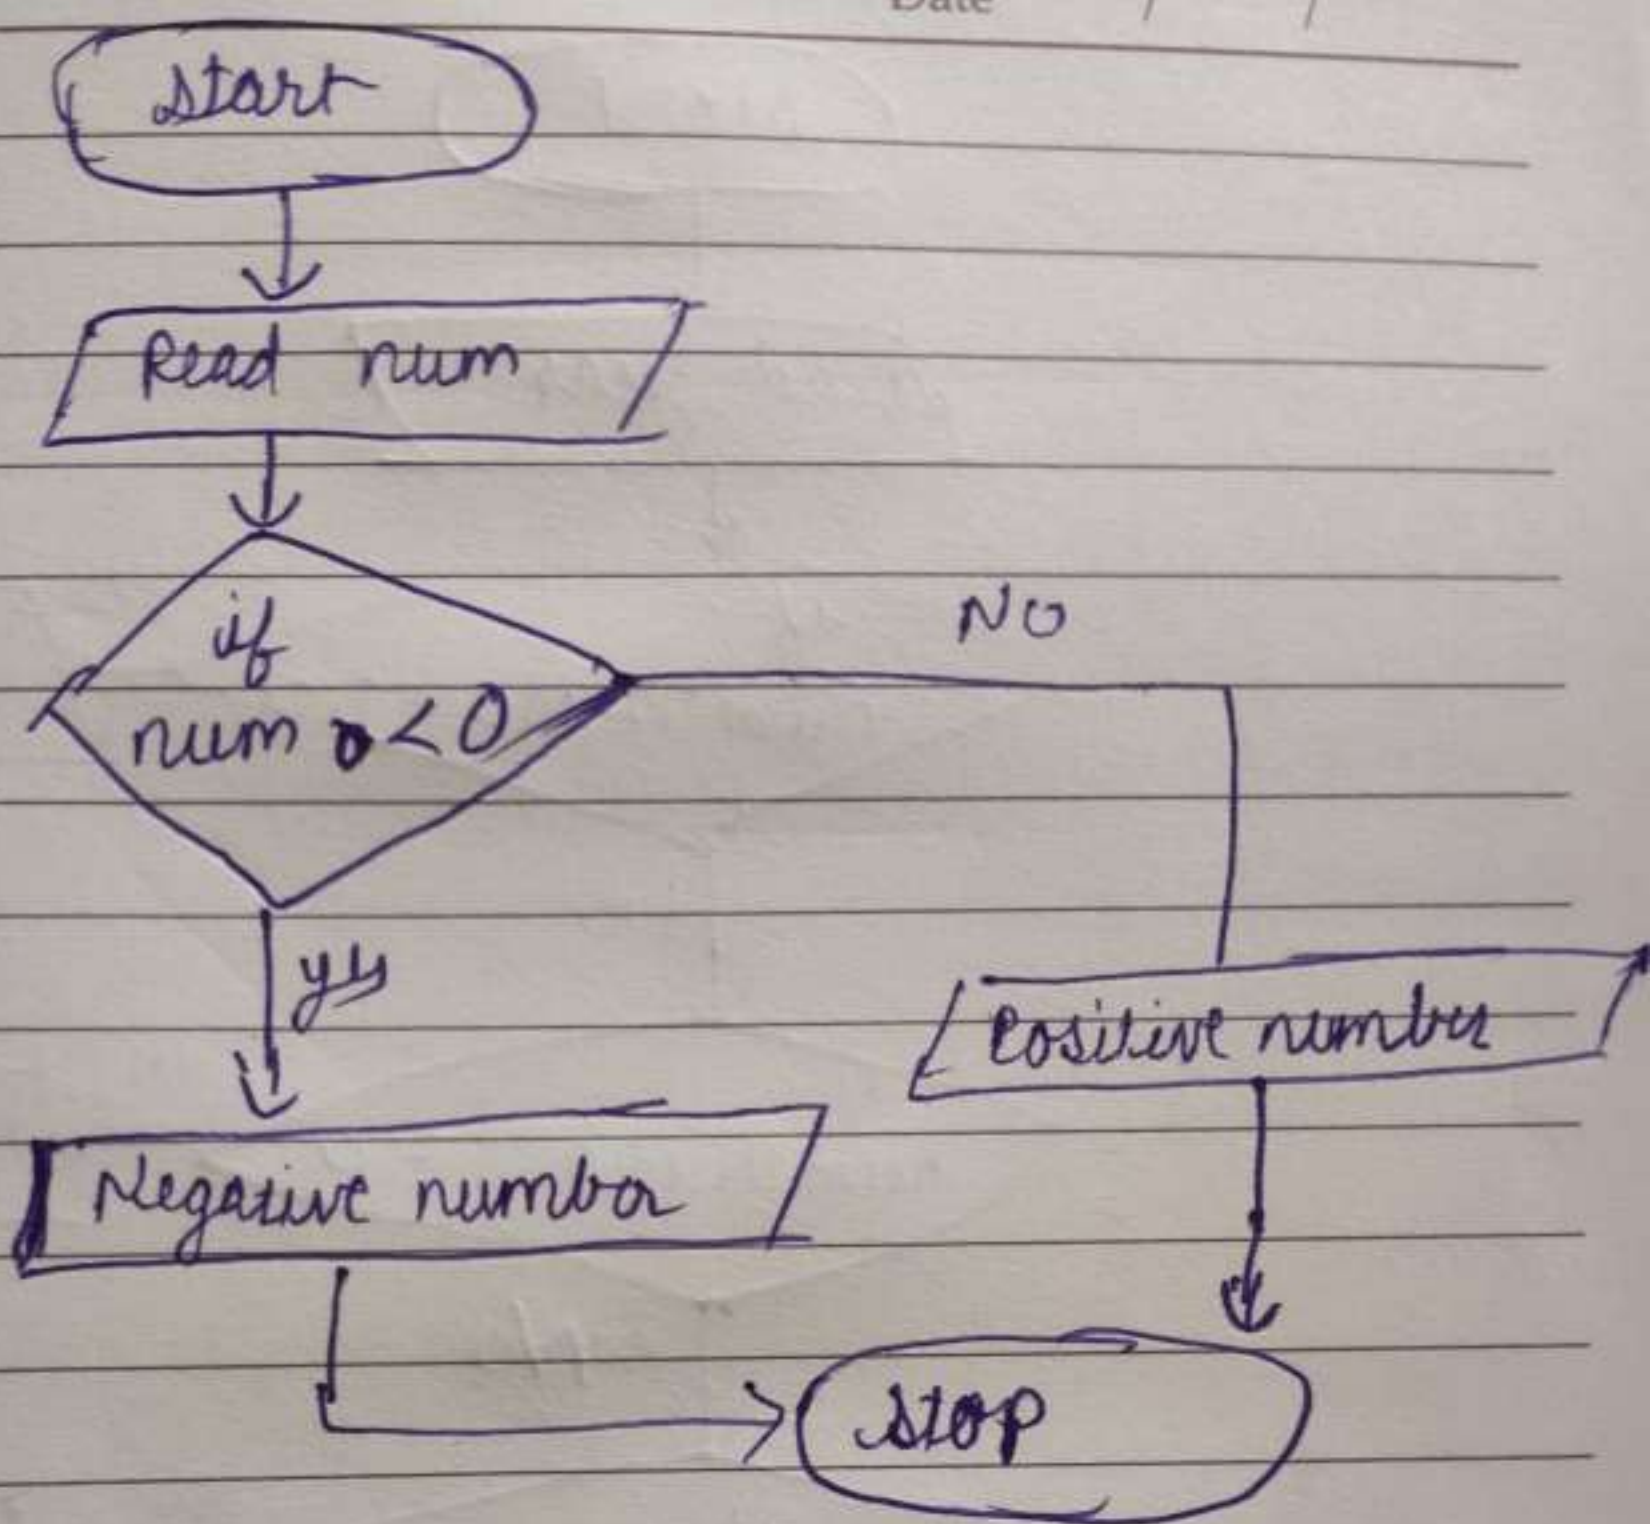 Date / /
Start
Read num
if
num < 0
No
yes
Positive number
Negative number
Stop